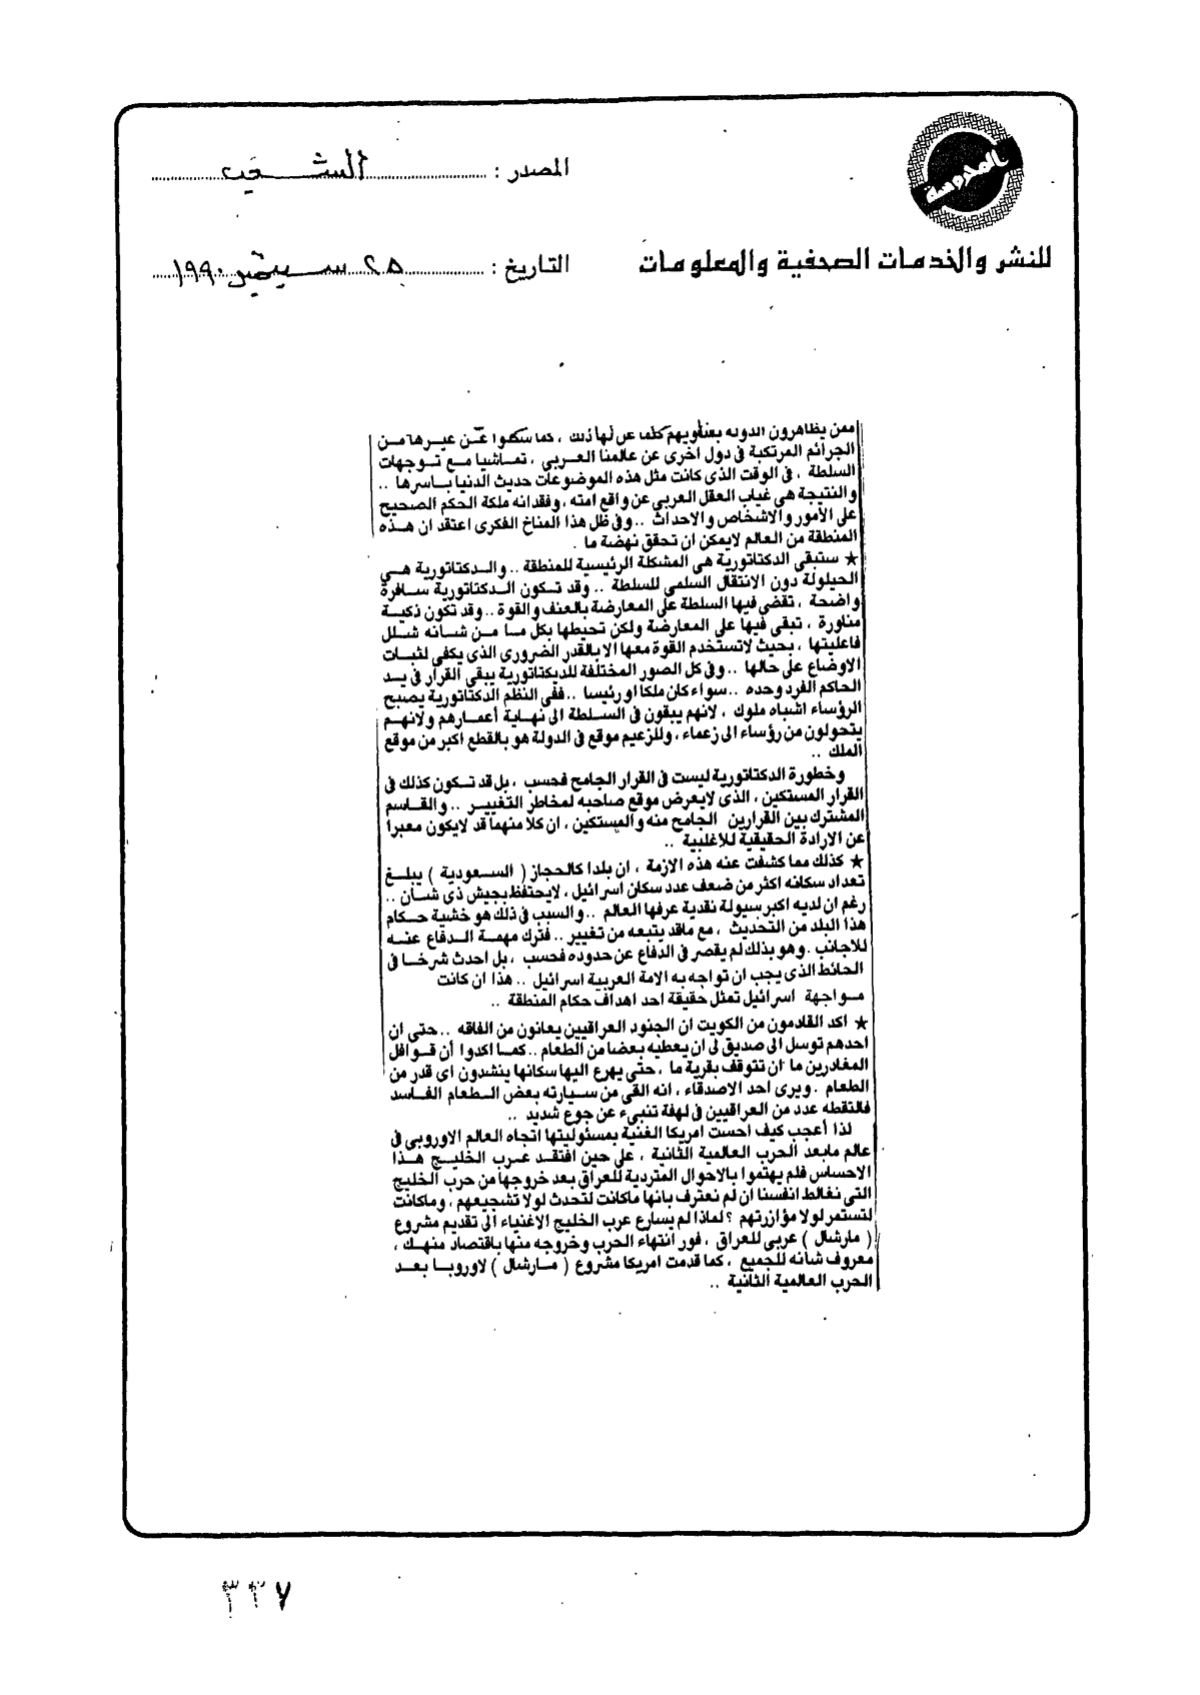 المحروسة
المصدر : الشعب
للنشر والخدمات الصحفية والمعلومات
التاريخ : ٢٥ سبتمبر ١٩٩٠
ممن يظاهرون الدولة بفتاويهم كلما عن لها ذلك ، كما سكتوا عن غيرها من
الجرائم المرتكبة فى دول اخرى عن عالمنا العربى ، تماشيا مع توجهات
السلطة ، فى الوقت الذى كانت مثل هذه الموضوعات حديث الدنيا باسرها ..
والنتيجة هى غياب العقل العربى عن واقع امته ، وفقدانه ملكة الحكم الصحيح
على الأمور والاشخاص والاحداث .. وفى ظل هذا المناخ الفكرى اعتقد ان هذه
المنطقة من العالم لايمكن ان تحقق نهضة ما .
★ ستبقى الدكتاتورية هى المشكلة الرئيسية للمنطقة .. والدكتاتورية هى
الحيلولة دون الانتقال السلمى للسلطة .. وقد تكون الدكتاتورية سافرة
واضحة ، تقضى فيها السلطة على المعارضة بالعنف والقوة .. وقد تكون ذكية
مناورة ، تبقى فيها على المعارضة ولكن تحيطها بكل ما من شانه شلل
فاعليتها ، بحيث لاتستخدم القوة معها الا بالقدر الضرورى الذى يكفى لثبات
الاوضاع على حالها .. وفى كل الصور المختلفة للديكتاتورية يبقى القرار فى يد
الحاكم الفرد وحده .. سواء كان ملكا او رئيسا .. ففى النظم الدكتاتورية يصبح
الرؤساء اشباه ملوك ، لانهم يبقون فى السلطة الى نهاية أعمارهم ولانهم
يتحولون من رؤساء الى زعماء ، وللزعيم موقع فى الدولة هو بالقطع اكبر من موقع
الملك ..
وخطورة الدكتاتورية ليست فى القرار الجامح فحسب ، بل قد تكون كذلك فى
القرار المستكين ، الذى لايعرض موقع صاحبه لمخاطر التغيير .. والقاسم
المشترك بين القرارين الجامح منه والمستكين ، ان كلا منهما قد لايكون معبرا
عن الارادة الحقيقية للاغلبية ..
★ كذلك مما كشفت عنه هذه الازمة ، ان بلدا كالحجاز ( السعودية ) يبلغ
تعداد سكانه اكثر من ضعف عدد سكان اسرائيل ، لايحتفظ بجيش ذى شأن ..
رغم ان لديه اكبر سيولة نقدية عرفها العالم .. والسبب فى ذلك هو خشية حكام
هذا البلد من التحديث ، مع ماقد يتبعه من تغيير .. فترك مهمة الدفاع عنه
للاجانب . وهو بذلك لم يقصر فى الدفاع عن حدوده فحسب ، بل احدث شرخا فى
الحائط الذى يجب ان تواجه به الامة العربية اسرائيل .. هذا ان كانت
مواجهة اسرائيل تمثل حقيقة احد اهداف حكام المنطقة ..
★ اكد القادمون من الكويت ان الجنود العراقيين يعانون من الفاقه .. حتى ان
احدهم توسل الى صديق لى ان يعطيه بعضا من الطعام .. كما اكدوا أن قوافل
المغادرين ما ان تتوقف بقرية ما ، حتى يهرع اليها سكانها ينشدون اى قدر من
الطعام . ويرى احد الاصدقاء ، انه القى من سيارته بعض الطعام الفاسد
فالتقطه عدد من العراقيين فى لهفة تنبىء عن جوع شديد ..
لذا أعجب كيف احست امريكا الغنية بمسئوليتها اتجاه العالم الاوروبى فى
عالم مابعد الحرب العالمية الثانية ، على حين افتقد عرب الخليج هذا
الاحساس فلم يهتموا بالاحوال المتردية للعراق بعد خروجها من حرب الخليج
التى نغالط انفسنا ان لم نعترف بانها ماكانت لتحدث لولا تشجيعهم ، وماكانت
لتستمر لولا مؤازرتهم ؟ لماذا لم يسارع عرب الخليج الاغنياء الى تقديم مشروع
( مارشال ) عربى للعراق ، فور انتهاء الحرب وخروجه منها باقتصاد منهك ،
معروف شانه للجميع ، كما قدمت امريكا مشروع ( مارشال ) لاوروبا بعد
الحرب العالمية الثانية ..
٣٣٧